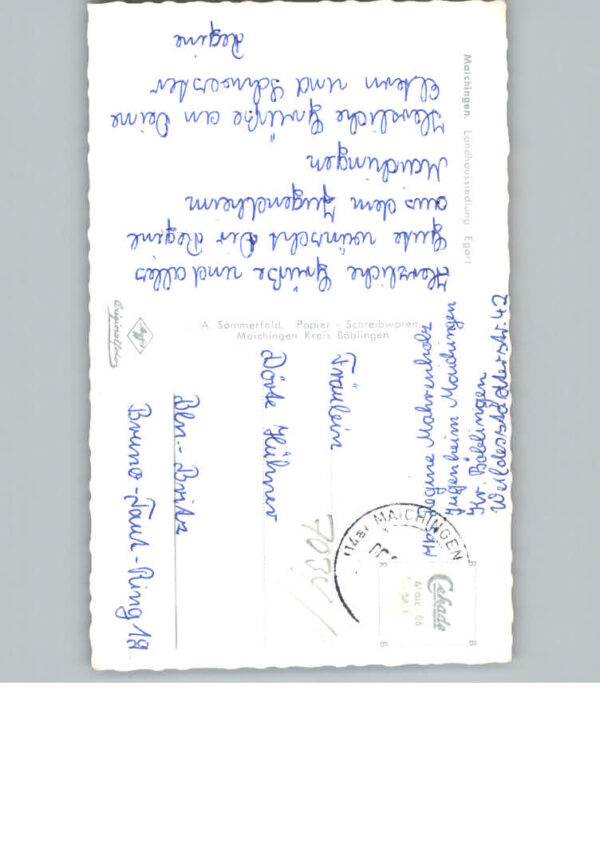 Maichingen. Landhaussiedlung Egart
Herzliche Grüße und alles
Gute wünscht Dir Regine
aus dem Jugendheim
Maichingen
Herzliche Grüße an Deine
Eltern und Schwester
Regine
Agfa
Originalfoto
A. Sommerfeld, Papier - Schreibwaren
Maichingen Kreis Böblingen
Regine Mahrenholz
Jugenheim Maichingen
Kr. Böblingen
Weilderstädterstr. 42
MAICHINGEN
Cekade
Maic 06
7030/
Fräulein
Dörte Hühner
Bln.-Britz
Bruno-Taut-Ring 19